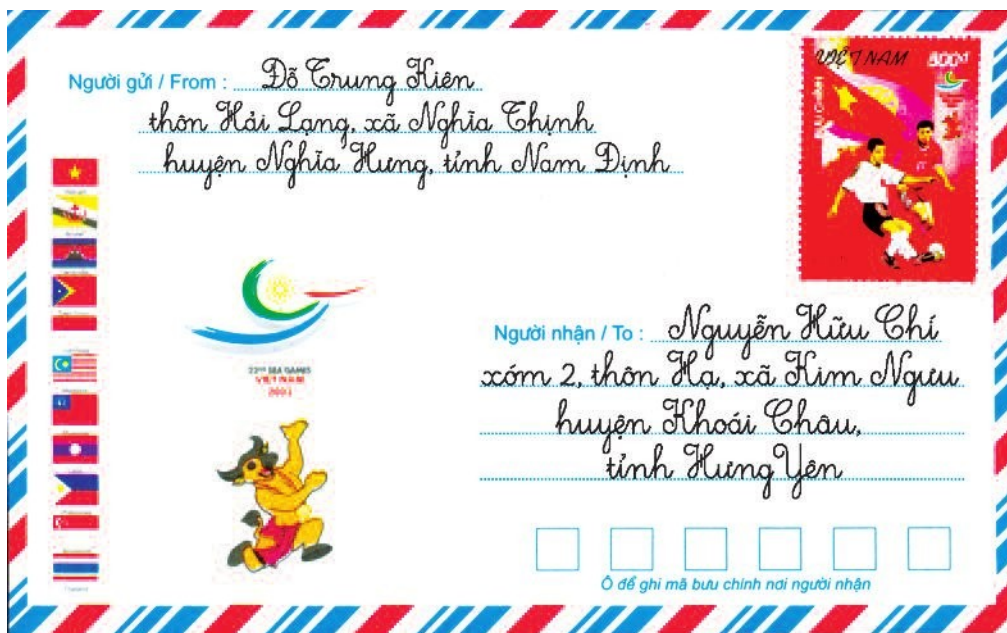 Người gửi / From : Đỗ Trung Kiên
thôn Hải Lạng, xã Nghĩa Thịnh
huyện Nghĩa Hưng, tỉnh Nam Định
VIỆT NAM 800đ
BƯU CHÍNH
22nd SEA GAMES
VIET NAM
2003
Người nhận / To : Nguyễn Hữu Chí
xóm 2, thôn Hạ, xã Kim Ngưu
huyện Khoái Châu,
tỉnh Hưng Yên
Ô để ghi mã bưu chính nơi người nhận